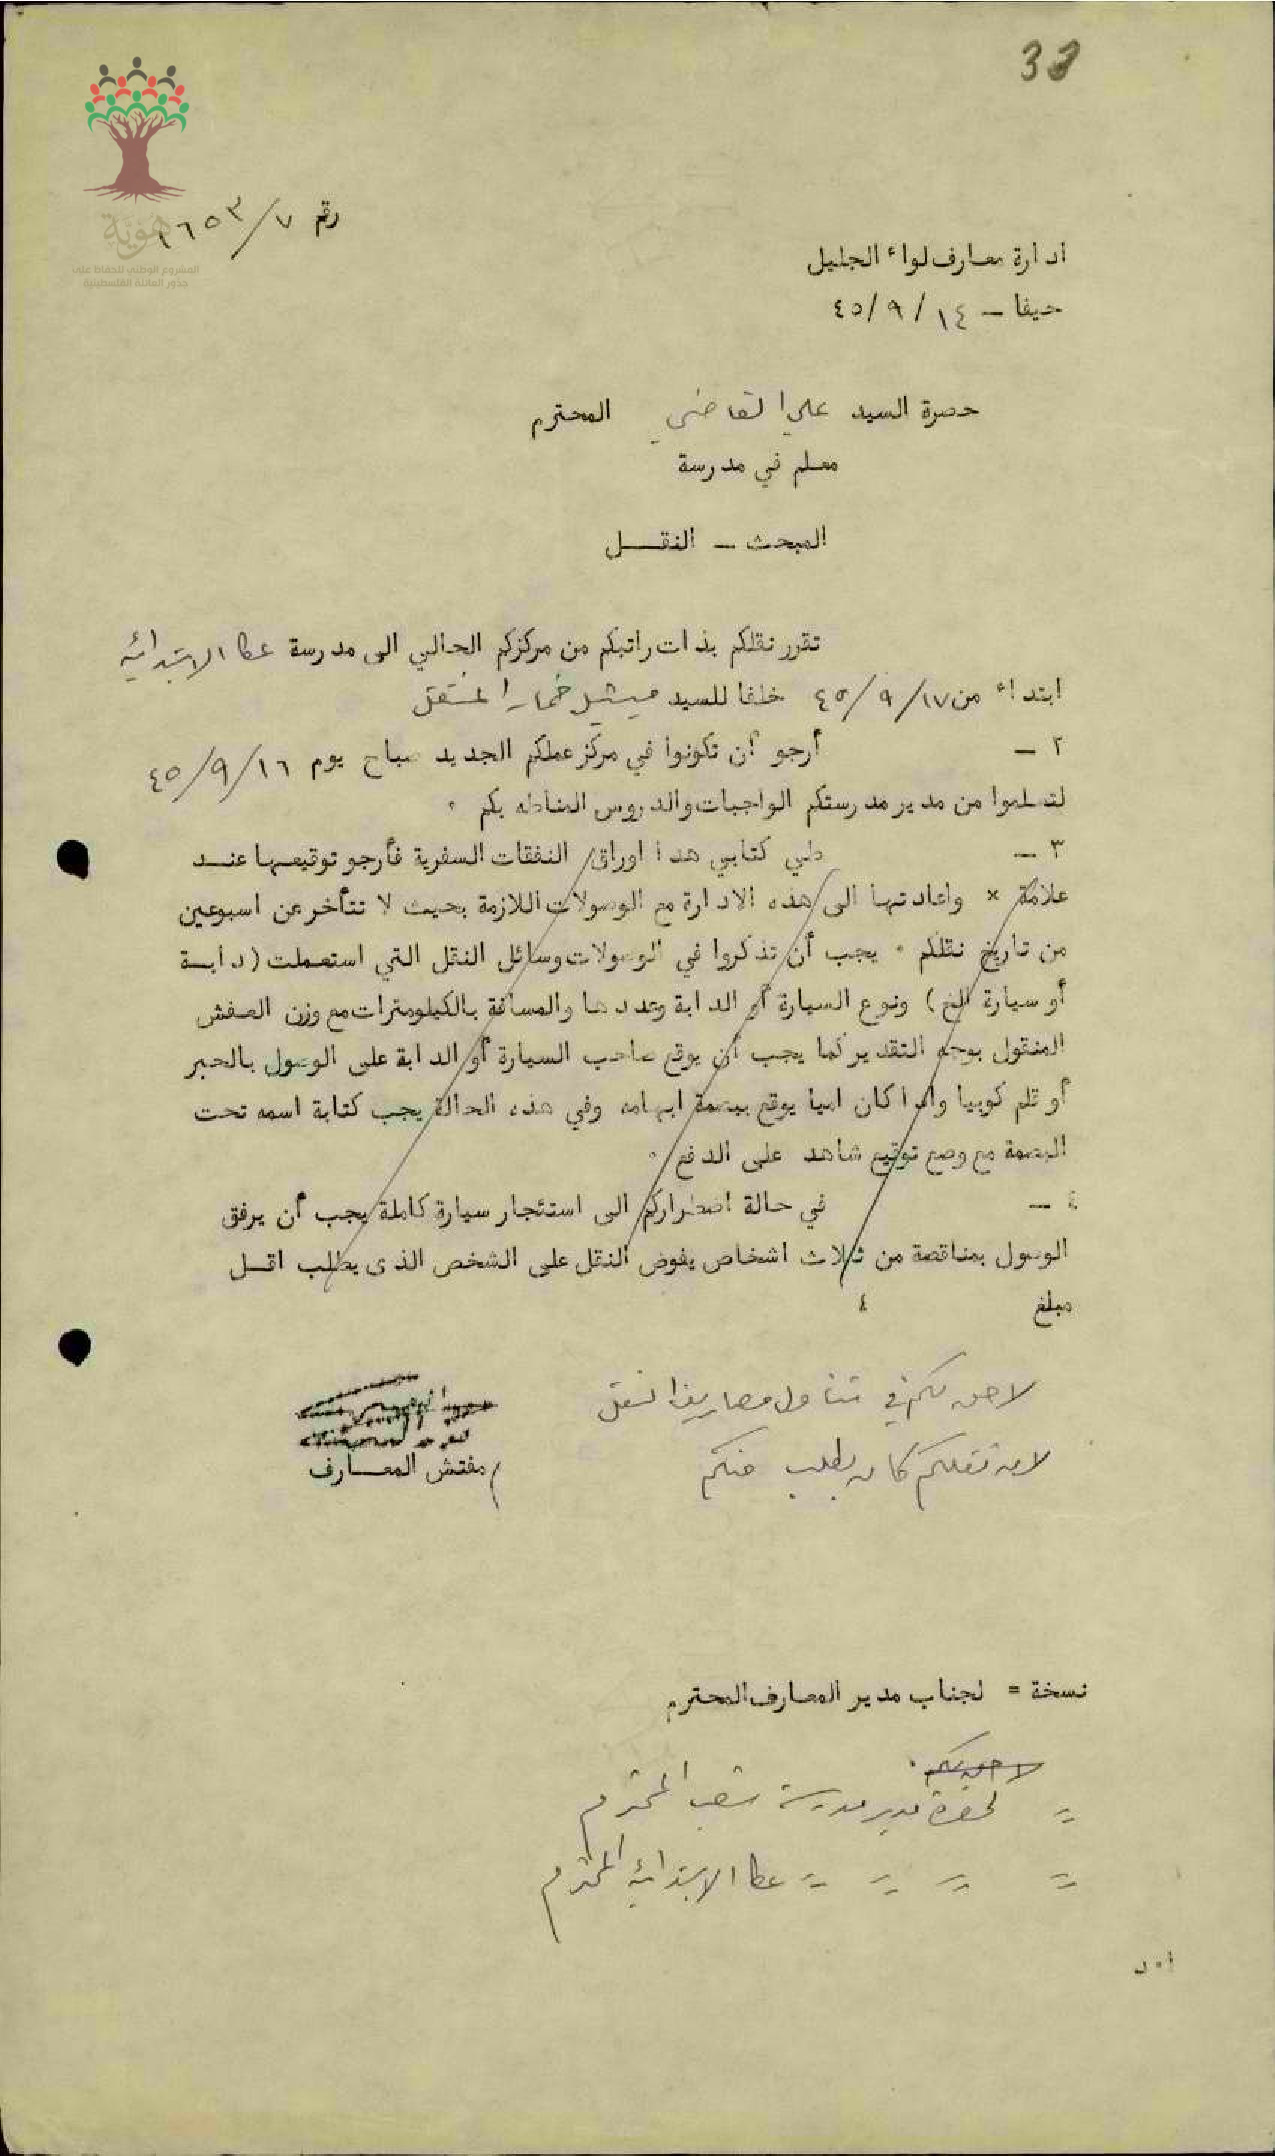 33
هوية
المشروع الوطني للحفاظ على
جذور العائلة الفلسطينية
رقم ٧/١٦٥٣
ادارة معارف لواء الجليل
حيفا – ١٤ /٩/ ٤٥
حضرة السيد علي القاضي المحترم
معلم في مدرسة
المبحث – النقــل
تقرر نقلكم بذات راتبكم من مركزكم الحالي الى مدرسة عكا الابتدائية
ابتداء من ١٧/ ٩/ ٤٥ خلفا للسيد ميشيل خمار المنتقل
٢ – أرجو أن تكونوا في مركز عملكم الجديد صباح يوم ١٦ /٩/ ٤٥
لتسلموا من مدير مدرستكم الواجبات والدروس المناطه بكم ٠
٣ – طي كتابي هذا اوراق النفقات السفرية فأرجو توقيعها عنــد
علامة × واعادتها الى هذه الادارة مع الوصولات اللازمة بحيث لا تتأخر عن اسبوعين
من تاريخ نقلكم ٠ يجب أن تذكروا في الوصولات وسائل النقل التي استعملت (دابــة
أو سيارة الخ) ونوع السيارة أو الدابة وعددها والمسافة بالكيلومترات مع وزن العفش
المنقول بوجه التقدير كما يجب أن يوقع صاحب السيارة أو الدابة على الوصول بالحبر
أو قلم كوبيا واذا كان اميا يوقع ببصمة ابهامه وفي هذه الحالة يجب كتابة اسمه تحت
البصمة مع وضع توقيع شاهد على الدفع ٠
٤ – في حالة اضطراركم الى استئجار سيارة كاملة يجب أن يرفق
الوصول بمناقصة من ثلاث اشخاص يفوض النقل على الشخص الذى يطلب اقــل
مبلغ ٤
لا حق لكم في تناول مصاريف النقل
لان نقلكم كان بطلب منكم
مفتش المعــارف
نسخة = لجناب مدير المعارف المحترم
لا حق لكم
= لحضرة مدير مدرسة شعب المحترم
= = = = عكا الابتدائية المحترم